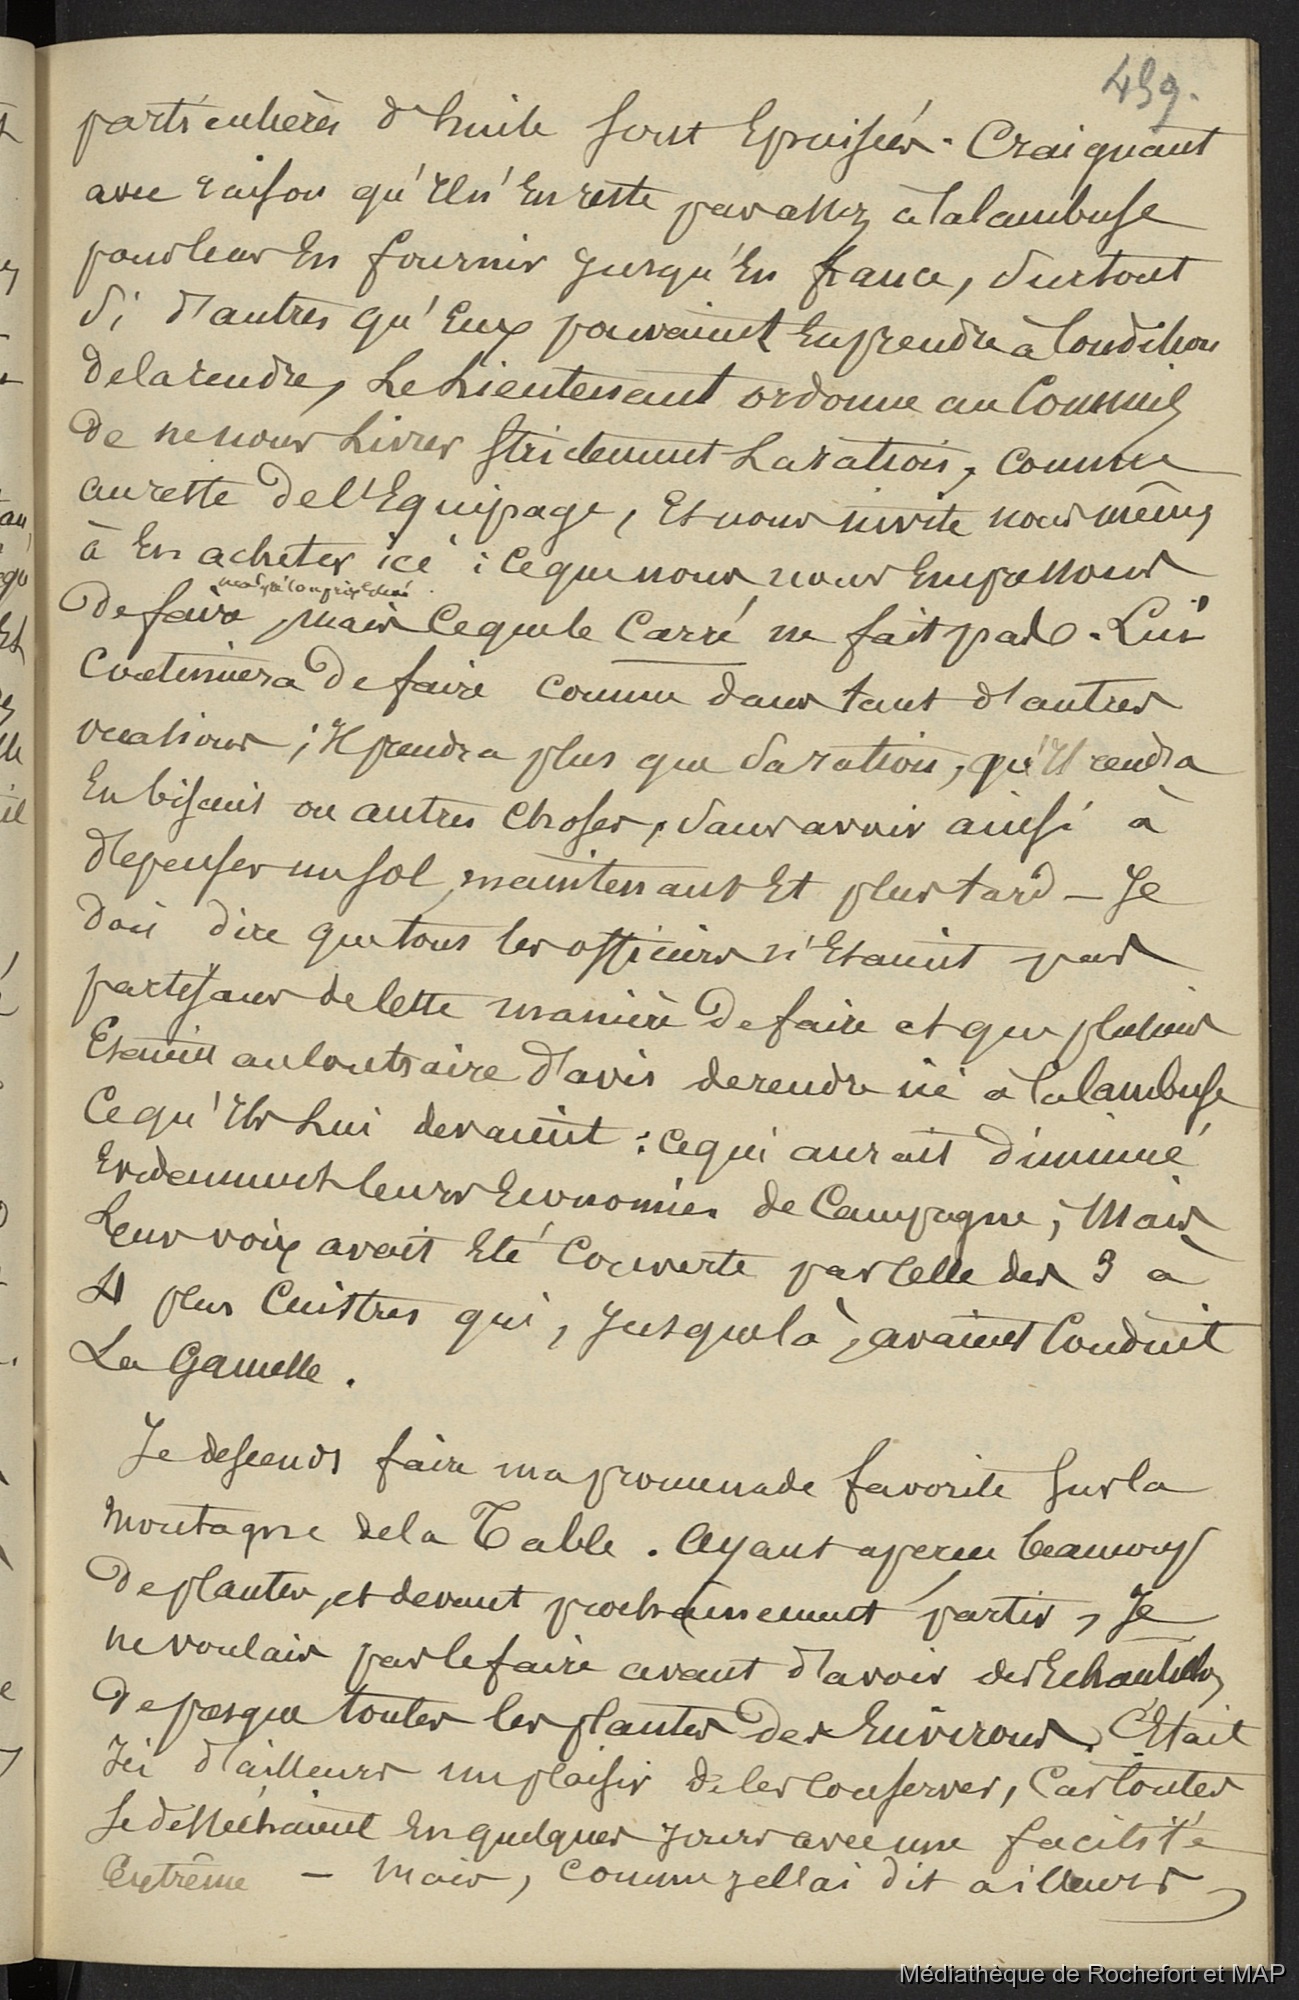 459.
particulières d'huile sont Epuisées. Craignant
avec raison qu'Il n'En reste pas assez à la Cambuse
pour leur En fournir jusqu'En france, surtout
si d'autres qu'Eux pouvaient En prendre à Condition
de la rendre, Le Lieutenant ordonne au Commis
de ne nous Livrer strictement La ration, comme
au reste de l'Equipage, Et nous invite nous mêmes
à En acheter ici : ce que nous nous Empressons
malgré son prix Elevé
De faire, mais Ce que le Carré ne fait pas. Lui
Continuera De faire comme dans tant d'autres
occasions ; Il prendra plus que sa ration, qu'Il rendra
En biscuit ou autres choses, sans avoir ainsi à
dépenser un sol maintenant Et plus tard – Je
dois dire que tous les officiers n'Etaient pas
partisans de Cette manière De faire et que plusieurs
Etaient au Contraire d'avis de rendre ici à la Cambuse
Ce qu'Ils Lui devaient : ce qui aurait Diminué
Evidemment leurs Economies de Campagne ; Mais
Leur voix avait Eté Couverte par Celle des 3 à
4 plus Cuistres qui, jusque là, avaient Conduit
La Gamelle.
Je descends faire ma promenade favorite sur la
Montagne de la Table. Ayant aperçu beaucoup
De plantes, et devant prochainement partir, Je
ne voulais pas le faire avant d'avoir des Echantillons
De presque toutes les plantes Des Environs. C'Etait
Ici d'ailleurs un plaisir de les Conserver, Car toutes
se désséchaient En quelques jours avec une facilité
Extrême – Mais, comme je l'ai dit ailleurs
Médiathèque de Rochefort et MAP